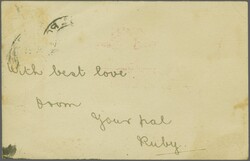 With best love
from
Your pal
Ruby